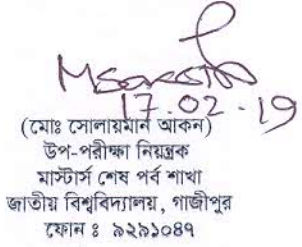 17.02.19
(মোঃ সোলায়মান আকন)
উপ-পরীক্ষা নিয়ন্ত্রক
মাস্টার্স শেষ পর্ব শাখা
জাতীয় বিশ্ববিদ্যালয়, গাজীপুর
ফোন ঃ ৯২৯১০৪৭